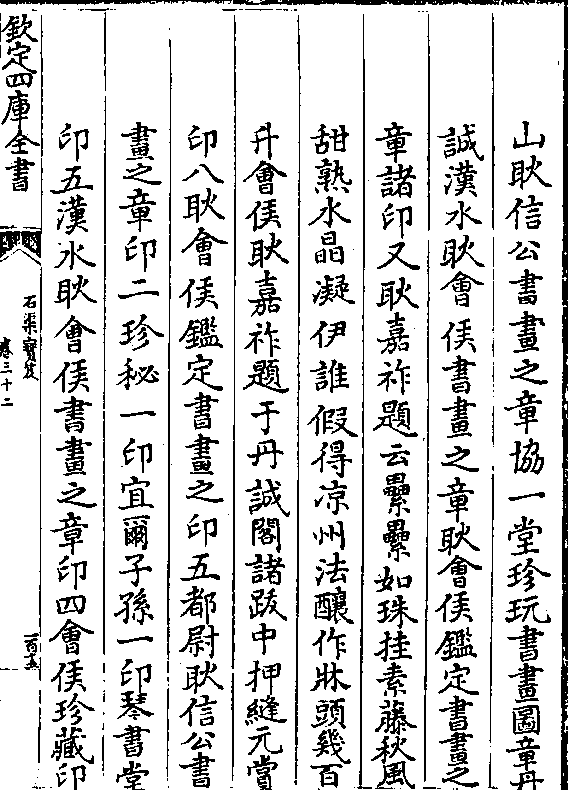 山耿信公書畫之章協一堂珍玩書畫圖章丹
誠漢水耿會侯書畫之章耿會侯鑑定書畫之
章諸印又耿嘉祚題云纍纍如珠挂素藤秋風
甜熟水晶凝伊誰假得凉州法釀作牀頭幾百
升會侯耿嘉祚題于丹誠閣諸跋中押縫元賞
印八耿會侯鑑定書畫之印五都尉耿信公書
畫之章印二珍秘一印宜爾子孫一印琴書堂
印五漢水耿會侯書畫之章印四會侯珍藏印
欽定四庫全書
石渠寶笈
卷三十二